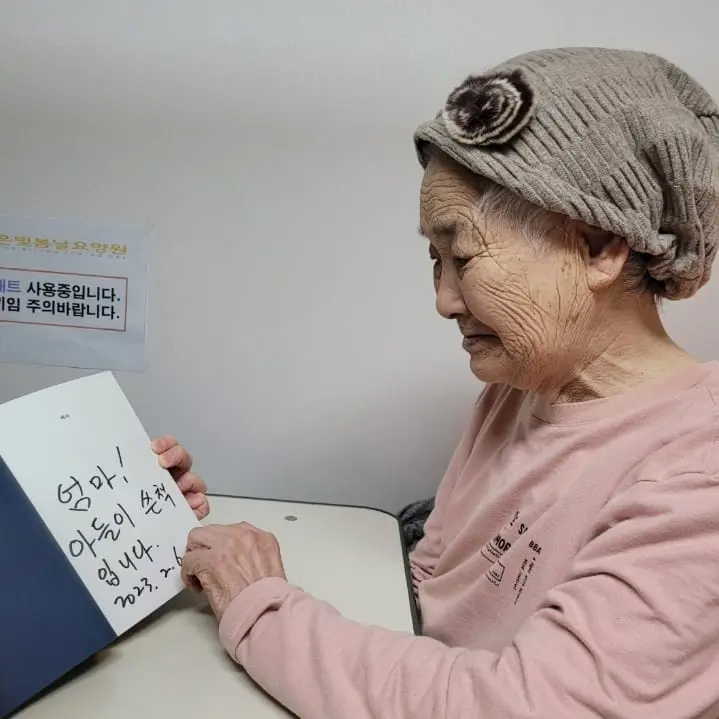 은빛봄날요양원
매트 사용중입니다.
끼임 주의바랍니다.
엄마!
아들이 쓴책
입니다.
2023. 2. 6